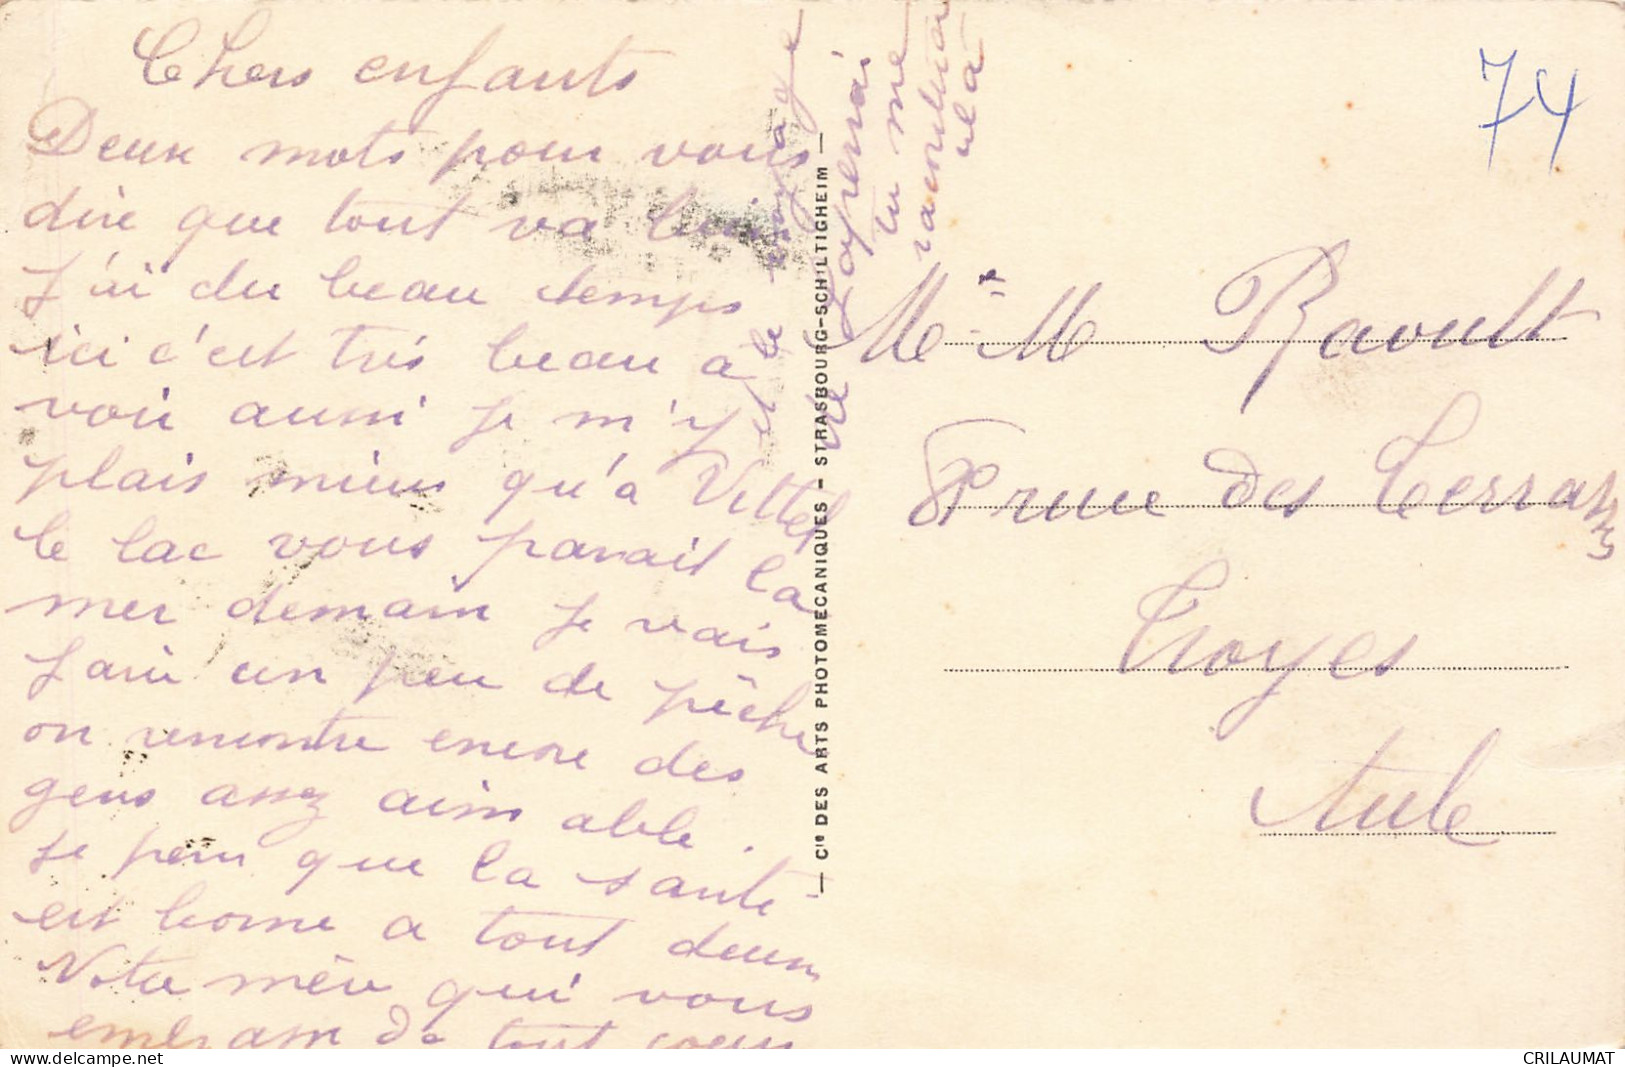 Chers enfants
Deux mots pour vous
dire que tout va bien
J'ai du beau temps
ici c'est très beau à
voir aussi je m'y
plais mieux qu'à Vittel
le lac vous parait la
mer demain je vais
faire un peu de pêche
on rencontre encore des
gens assez aim able.
Je pens que la santé
est bonne a tout deux
Votre mère qui vous
embrasse de tout coeur
et le voyage
tu me
racontera
cela
Cie DES ARTS PHOTOMECANIQUES - STRASBOURG-SCHILTIGHEIM
74
Me = M Raoult
8 rue des Terrasses
Troyes
Aube
www.delcampe.net
CRILAUMAT